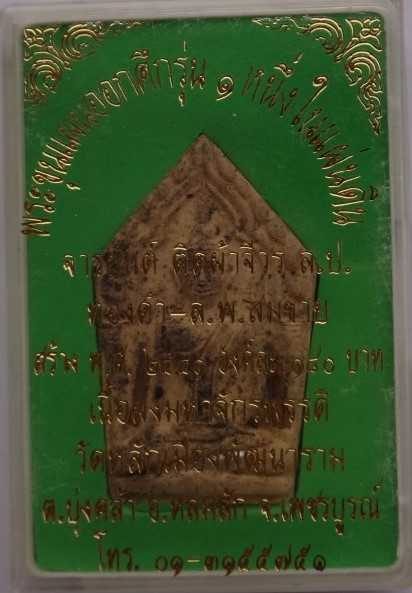 พระขุนแผนออกศึกรุ่น ๑ หนึ่งในแผ่นดิน
จารยันต์ ติดผ้าจีวร ล.ป.
ทองดำ-ล.พ.สมชาย
สร้าง พ.ศ. ๒๕๔๐ องค์ละ ๑๘๐ บาท
เนื้อผงมหาจักรพรรดิ
วัดหลักเมืองพัฒนาราม
ต.บุ่งคล้า อ.หล่มสัก จ.เพชรบูรณ์
โทร. ๐๑-๓๑๕๕๗๕๑